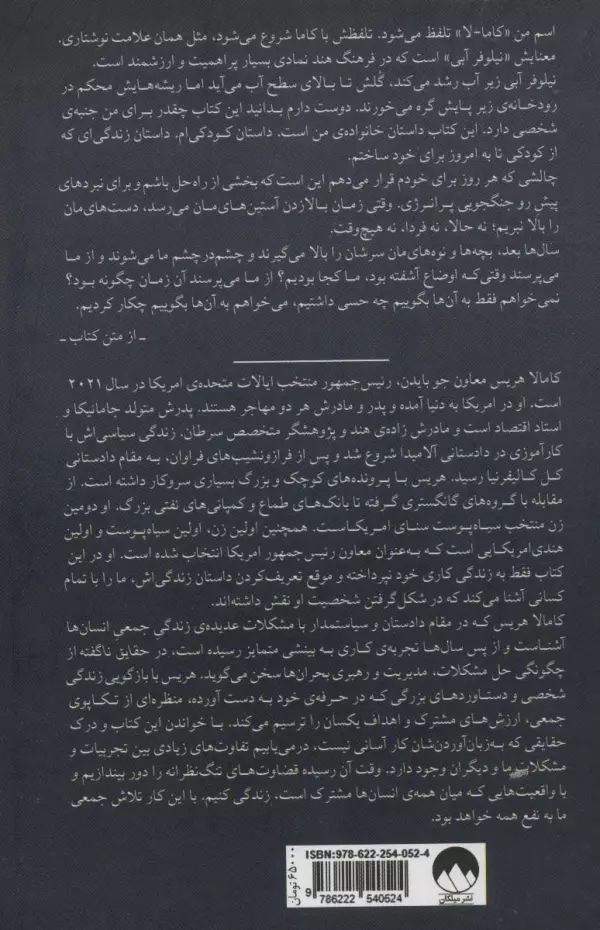 اسم من «کاما-لا» تلفظ می‌شود. تلفظش با کاما شروع می‌شود، مثل همان علامت نوشتاری.
معنایش «نیلوفر آبی» است که در فرهنگ هند نمادی بسیار پراهمیت و ارزشمند است.
نیلوفر آبی زیر آب رشد می‌کند، گلش تا بالای سطح آب می‌آید اما ریشه‌هایش محکم در
رودخانه‌ی زیر پایش گره می‌خورند. دوست دارم بدانید این کتاب چقدر برای من جنبه‌ی
شخصی دارد. این کتاب داستان خانواده‌ی من است. داستان کودکی‌ام. داستان زندگی‌ای که
از کودکی تا به امروز برای خود ساختم.
چالشی که هر روز برای خودم قرار می‌دهم این است که بخشی از راه‌حل باشم و برای نبردهای
پیش رو جنگجویی پرانرژی. وقتی زمان بالازدن آستین‌های‌مان می‌رسد، دست‌های‌مان
را بالا نبریم؛ نه حالا، نه فردا، نه هیچ‌وقت.
سال‌ها بعد، بچه‌ها و نوه‌های‌مان سرشان را بالا می‌گیرند و چشم‌درچشم ما می‌شوند و از ما
می‌پرسند وقتی‌که اوضاع آشفته بود، ما کجا بودیم؟ از ما می‌پرسند آن زمان چگونه بود؟
نمی‌خواهم فقط به آن‌ها بگوییم چه حسی داشتیم، می‌خواهم به آن‌ها بگوییم چکار کردیم.
ـ از متن کتاب ـ
کامالا هریس معاون جو بایدن، رئیس‌جمهور منتخب ایالات متحده‌ی امریکا در سال ۲۰۲۱
است. او در امریکا به دنیا آمده و پدر و مادرش هر دو مهاجر هستند. پدرش متولد جامائیکا و
استاد اقتصاد است و مادرش زاده‌ی هند و پژوهشگر متخصص سرطان. زندگی سیاسی‌اش با
کارآموزی در دادستانی آلامیدا شروع شد و پس از فرازونشیب‌های فراوان، به مقام دادستانی
کل کالیفرنیا رسید. هریس با پرونده‌های کوچک و بزرگ بسیاری سروکار داشته است. از
مقابله با گروه‌های گانگستری گرفته تا بانک‌های طماع و کمپانی‌های نفتی بزرگ. او دومین
زن منتخب سیاه‌پوست سنای امریکاست. همچنین اولین زن، اولین سیاه‌پوست و اولین
هندی‌امریکایی است که به‌عنوان معاون رئیس‌جمهور امریکا انتخاب شده است. او در این
کتاب فقط به زندگی کاری خود نپرداخته و موقع تعریف‌کردن داستان زندگی‌اش، ما را با تمام
کسانی آشنا می‌کند که در شکل‌گرفتن شخصیت او نقش داشته‌اند.
کامالا هریس که در مقام دادستان و سیاستمدار با مشکلات عدیده‌ی زندگی جمعی انسان‌ها
آشناست و از پس سال‌ها تجربه‌ی کاری به بینشی متمایز رسیده است، در حقایق ناگفته از
چگونگی حل مشکلات، مدیریت و رهبری بحران‌ها سخن می‌گوید. هریس با بازگویی زندگی
شخصی و دستاوردهای بزرگی که در حرفه‌ی خود به دست آورده، منظره‌ای از تکاپوی
جمعی، ارزش‌های مشترک و اهداف یکسان را ترسیم می‌کند. با خواندن این کتاب و درک
حقایقی که به‌زبان‌آوردن‌شان کار آسانی نیست، درمی‌یابیم تفاوت‌های زیادی بین تجربیات و
مشکلات ما و دیگران وجود دارد. وقت آن رسیده قضاوت‌های تنگ‌نظرانه را دور بیندازیم و
با واقعیت‌هایی که میان همه‌ی انسان‌ها مشترک است، زندگی کنیم. با این کار تلاش جمعی
ما به نفع همه خواهد بود.
ISBN:978-622-254-052-4
9 786222 540524
۶۵۰۰۰ تومان
نشر میلکان